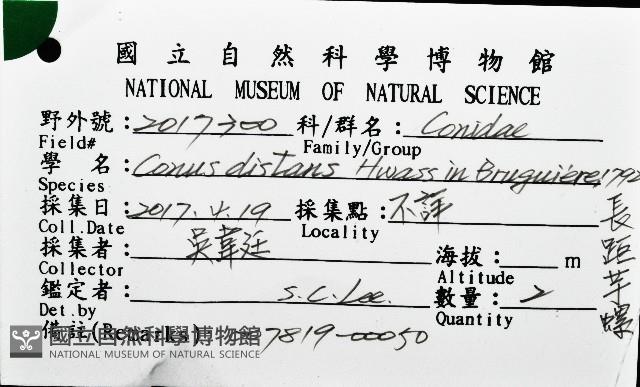 國立自然科學博物館
NATIONAL MUSEUM OF NATURAL SCIENCE
野外號：2017300 科/群名：Conidae
Field# Family/Group
學 名：Conus distans Hwass in Bruguière, 1792
Species
採集日：2017.4.19 採集點：不詳
Coll.Date Locality
採集者：吳韋廷 海拔： m
Collector Altitude
鑑定者： S.C.Lee. 數量：2
Det.by Quantity
備註(Remarks) 7819-00050
長距芋螺
國立自然科學博物館
NATIONAL MUSEUM OF NATURAL SCIENCE